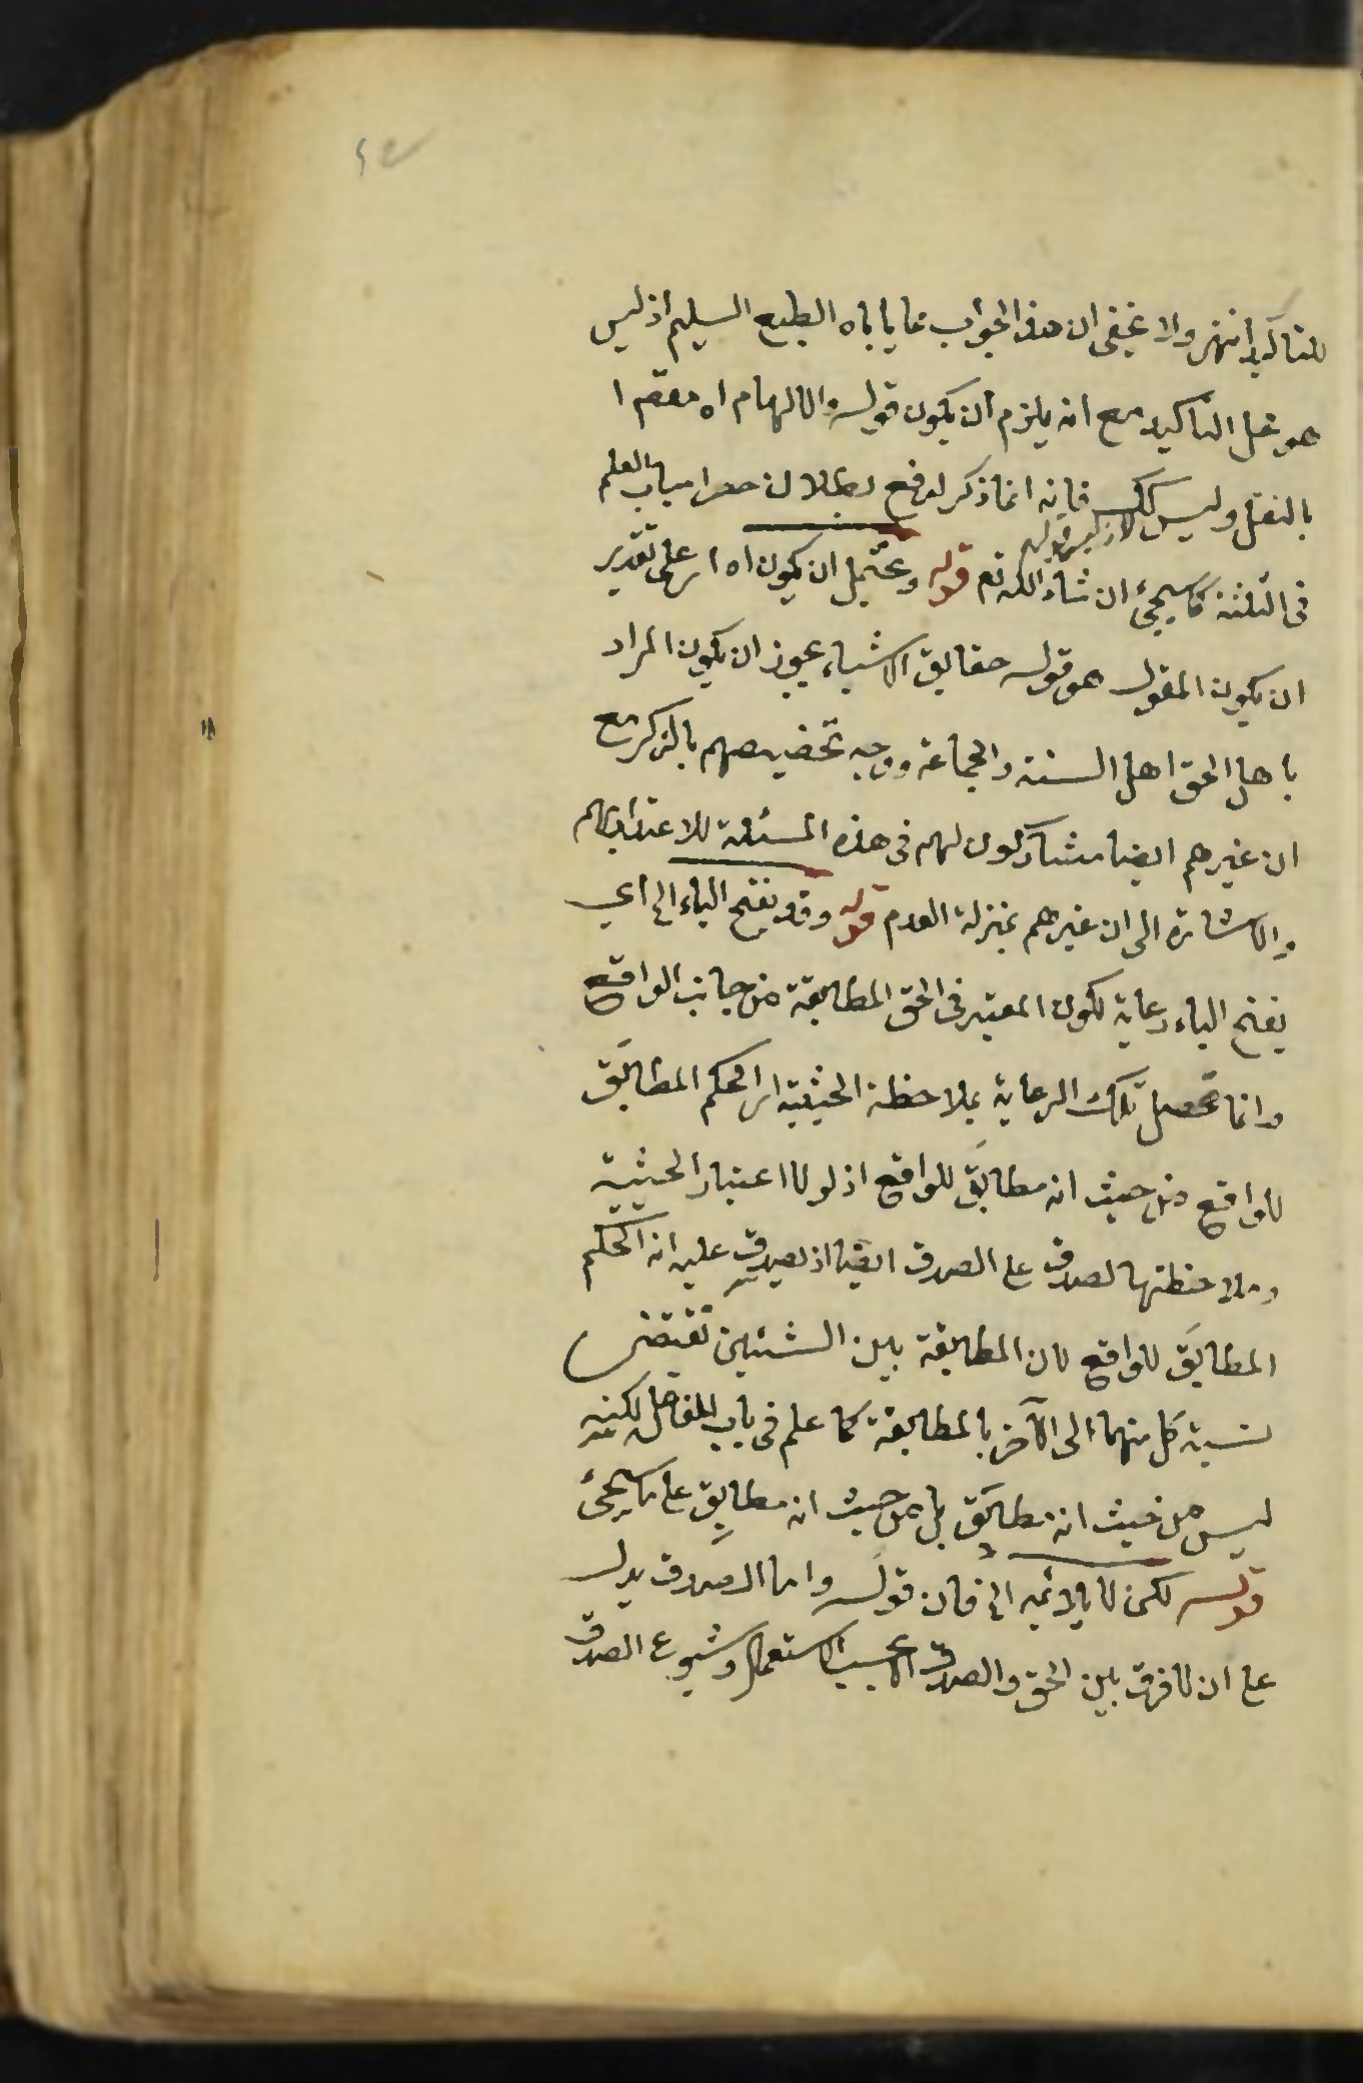 للتأكيد انتهى ولا يخفى ان هذا الجواب مما ياباه الطبع السليم اذ ليس
هو محل التأكيد مع انه يلزم ان يكون قوله والالهام اه مقصما
بالنقل وليس كك فانه انما ذكر لدفع بطلان حصر اسباب العلم
فى الثلثة كما سيجئ ان شاء الله تع قوله ويحتمل ان يكون اه اى على تقدير
ان يكون المقول هو قوله حقايق الاشياء يجوز ان يكون المراد
باهل الحق اهل السنة والجماعة ووجه تخصيصهم بالذكر مع
ان غيرهم ايضا مشاركون لهم فى هذه المسئلة للاعتداد بهم
والاشارة الى ان غيرهم بمنزلة العدم قوله وقد يفتح الباء الخ اى
يفتح الباء رعاية لكون المعتبر فى الحق المطابقة من جانب الواقع
وانما تحصل تلك الرعاية بملاحظة الحيثية اى الحكم المطابَق
للواقع من حيث انه مطابَق للواقع اذ لولا اعتبار الحيثية
وملاحظتها لصدق على الصدق ايضا اذ يصدق عليه انه الحكم
المطابَق للواقع لان المطابقة بين الشيئين تقتضى
نسبة كل منهما الى الآخر بالمطابقة كما علم فى باب المفاعل لكنه
ليس من حيث انه مطابَق بل من حيث انه مطابِق على ما سيجئ
قوله لكن لا يلائمه الخ فان قوله واما الصدق يدل
على ان لا فرق بين الحق والصدق الا بحسب الاستعمال وشيوع الصدق